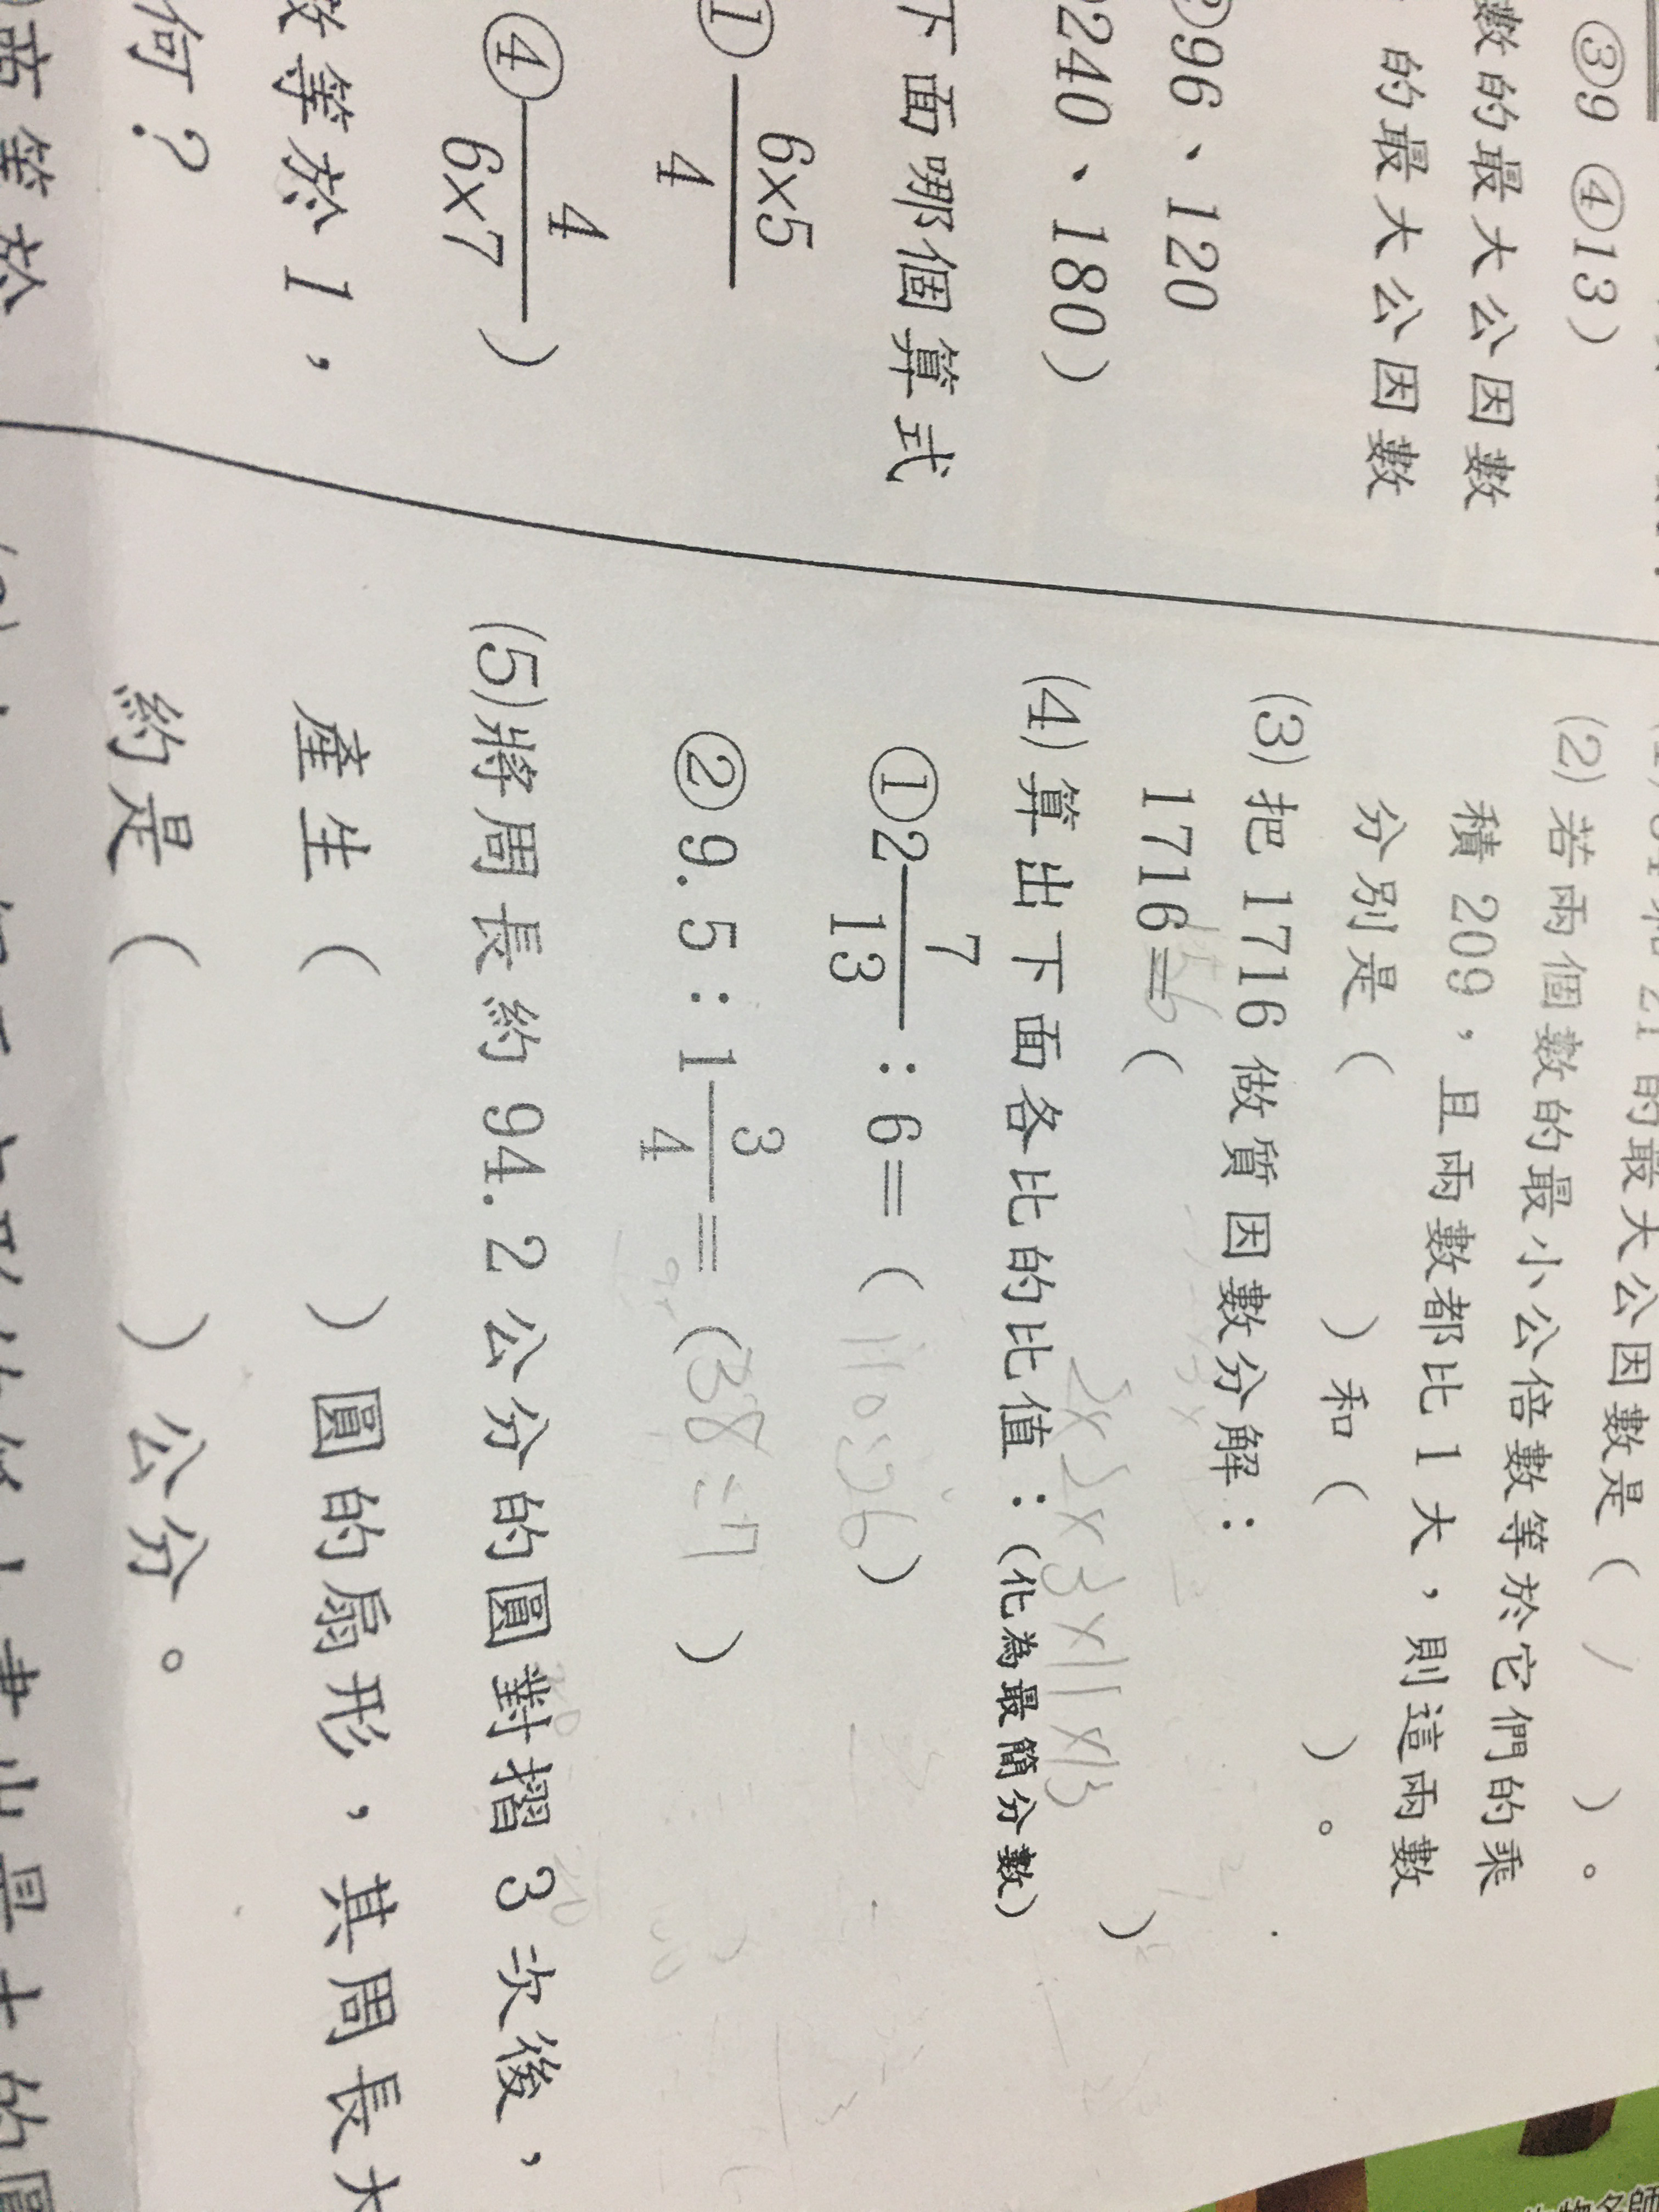 ③9 ④13)
數的最大公因數
的最大公因數
96、120
240、180)
下面哪個算式
① 6×5/4
④ 4/6×7 )
等於 1，
何？
等於
的最大公因數是( )。
(2) 若兩個數的最小公倍數等於它們的乘
積 209，且兩數都比 1 大，則這兩數
分別是( )和( )。
(3) 把 1716 做質因數分解：
2×2×3×11×13
1716=( )
(4) 算出下面各比的比值：(化為最簡分數)
①2 7/13 : 6=( )
②9.5 : 1 3/4 =(38:7)
(5)將周長約 94.2 公分的圓對摺 3 次後，
產生( )圓的扇形，其周長大
約是( )公分。